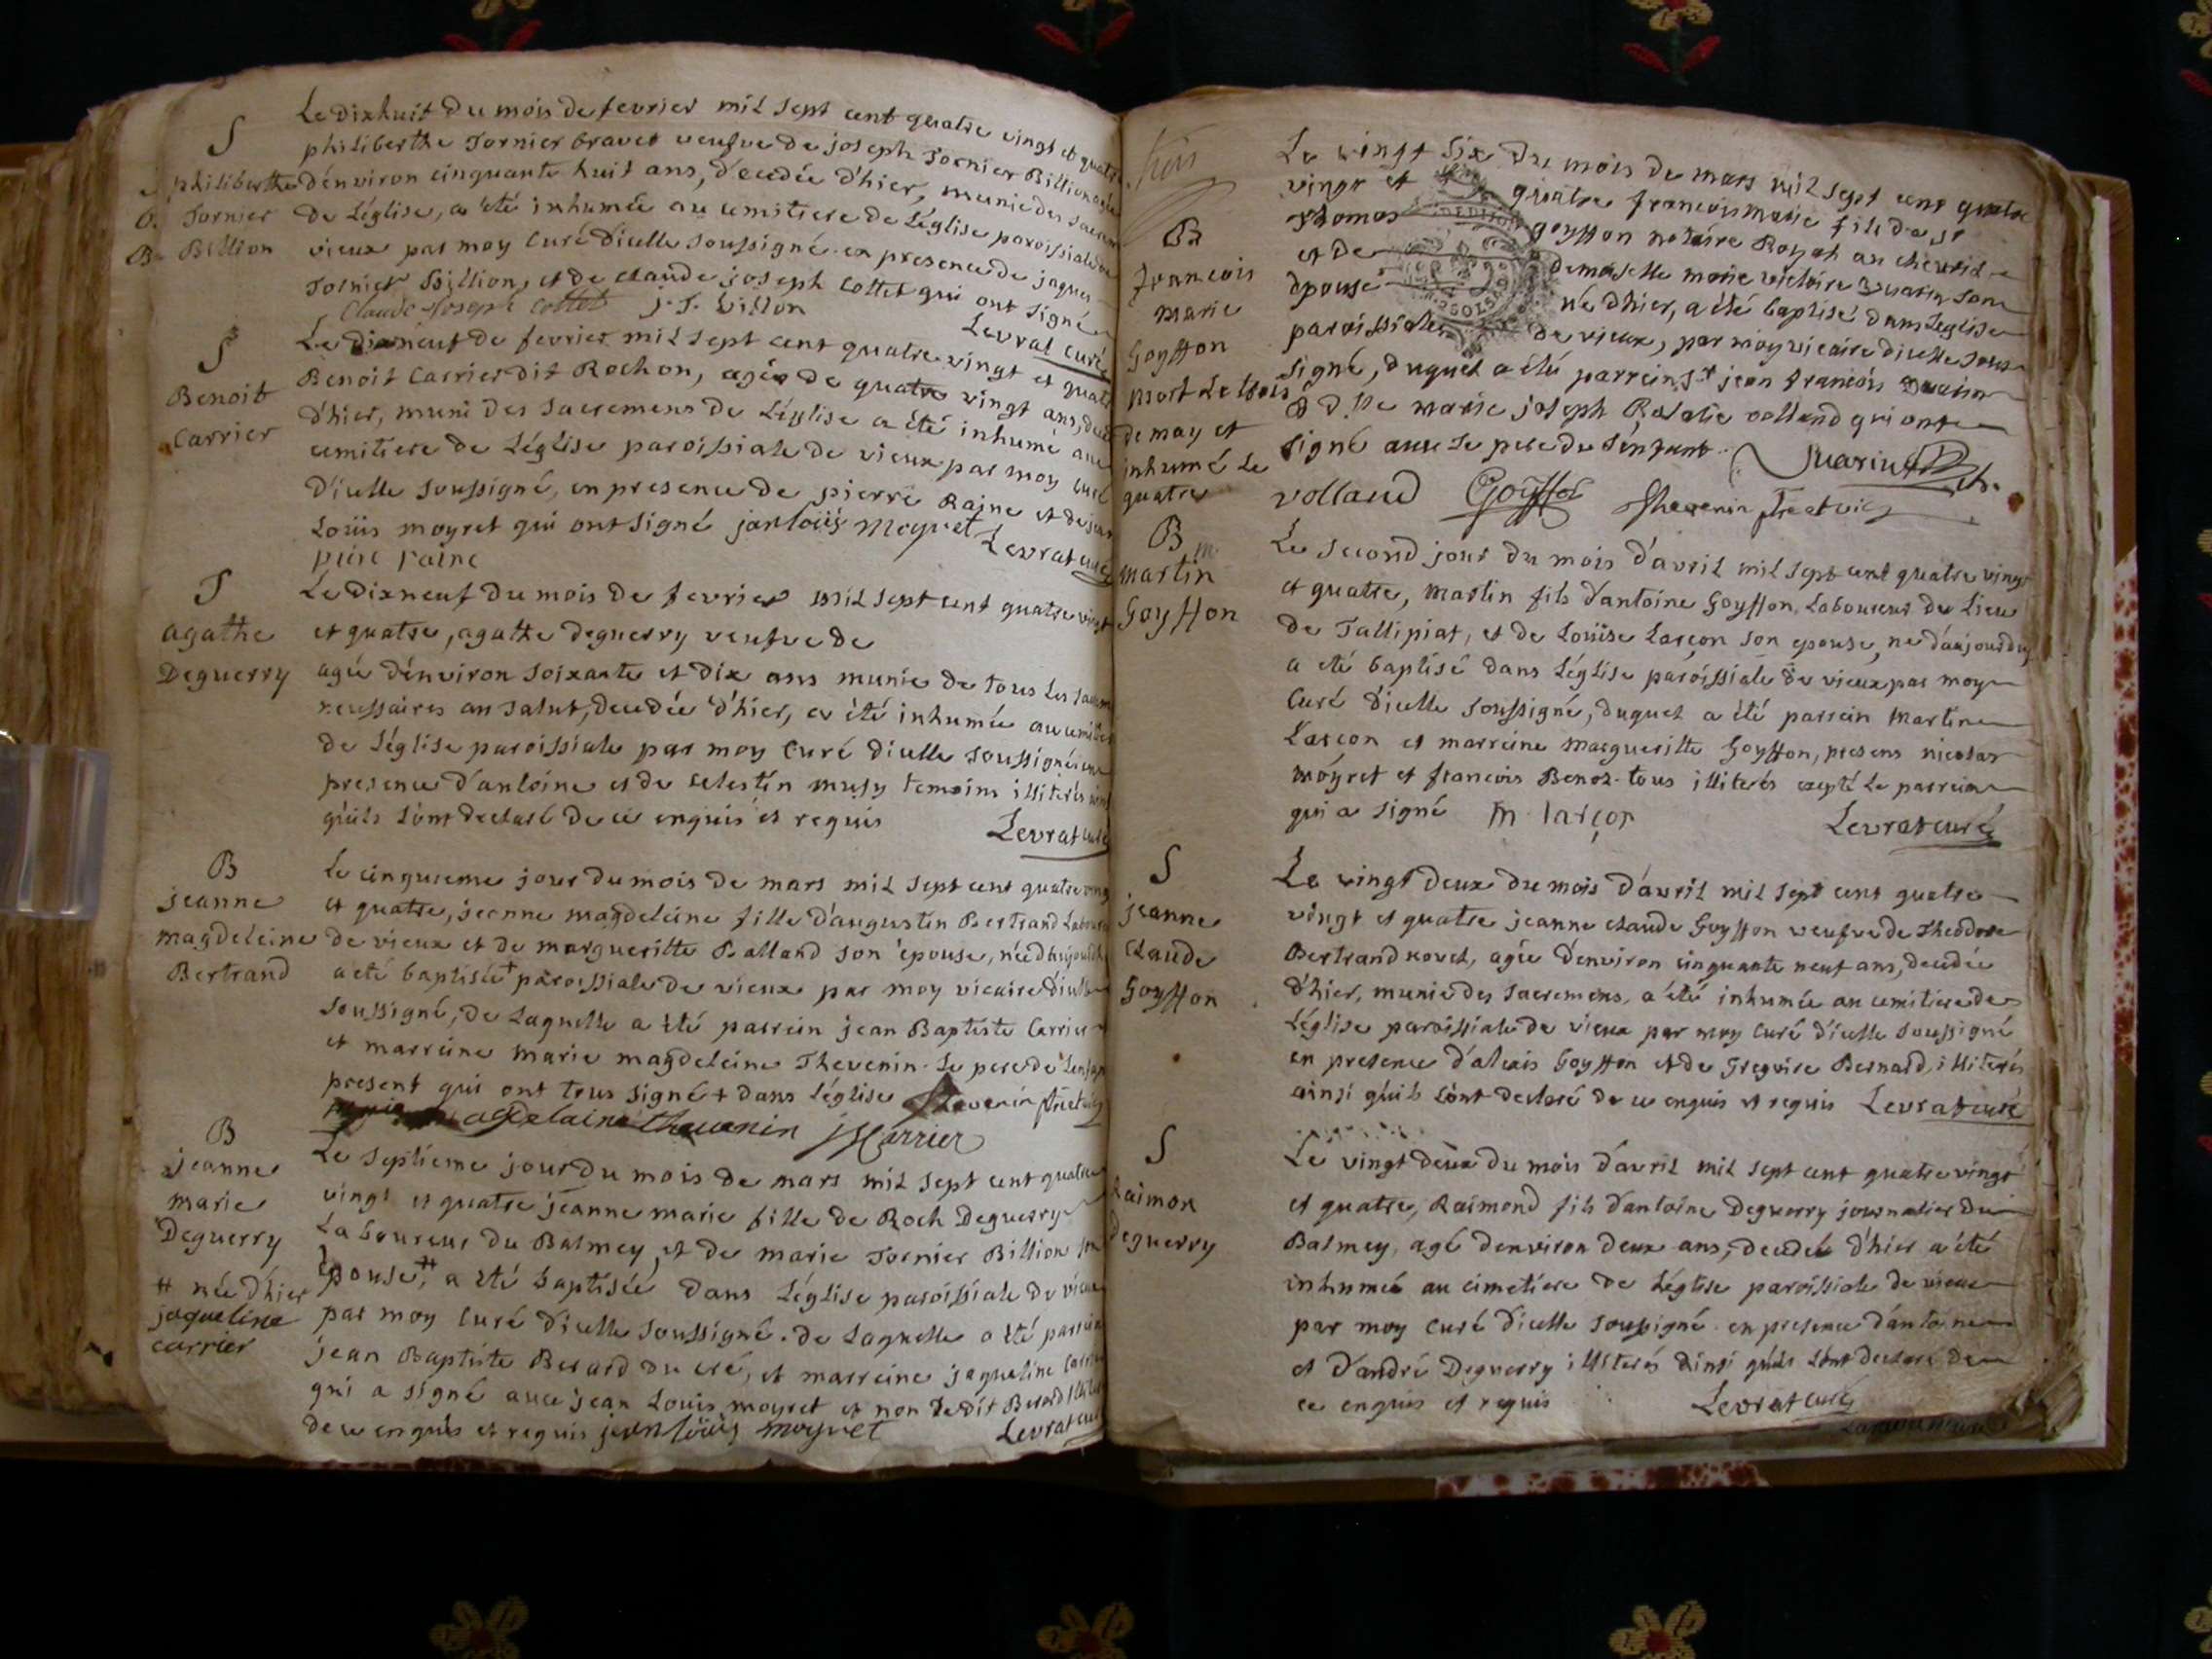 S
philiberthe
Tornier
B. Billion
Le dixhuit du mois de fevrier mil sept cent quatre vingt et quatre
philiberthe Tornier bravet veufve de joseph Tornier Billion agée
d'environ cinquante huit ans, decedée d'hier, munie des sacrem
de Léglise, a été inhumée au cemitiere de Léglise paroissiale de
vieux par moy Curé d'icelle soussigné en presence de jaques
Tornier Billion, et de claude joseph cottet qui ont signé
Claude Joseph Cottet J. T. billion
Levrat curé
S
Benoit
Carrier
Le dixneuf de fevrier mil sept cent quatre vingt et quatre
Benoit Carrier dit Rochon, agé de quatre vingt ans, decedé
d'hier, muni des sacremens de Léglise a été inhumé au
cemitiere de Léglise paroissiale de vieux par moy curé
d'icelle soussigné, en presence de pierre Raine et de jean
Loüis moyret qui ont signé jan loüis Moyret
piere raine Levrat curé
S
agathe
Deguerry
Le dixneuf du mois de fevrier mil sept cent quatre vingt
et quatre, agathe deguerry veufve de
agée d'environ soixante et dix ans munie de tous les sacrem
necessaires au salut, decedée d'hier, a été inhumée au cemitiere
de Léglise paroissiale par moy Curé d'icelle soussigné en
presence d'antoine et de celestin musy temoins illiterés ainsi
qu'ils s'ont declaré de ce enquis et requis Levrat curé
B
jeanne
magdeleine
Bertrand
Le cinquieme jour du mois de mars mil sept cent quatre vingt
et quatre, jeanne magdeleine fille d'augustin Bertrand Laboureur
de vieux et de margueritte Balland son épouse, née d'aujourd'hu
a été baptisée + paroissiale de vieux par moy vicaire d'icelle
soussigné, de Laquelle a été parrein jean Baptiste Carrier
et marreine marie magdeleine Thevenin. Le pere de Lenfant
present qui ont tous signé + dans Léglise Thevenin
marie magdelaine thevenin J B Carrier
B
jeanne
marie
Deguerry
# née d'hier
jaqueline
carrier
Le septieme jour du mois de mars mil sept cent quatre
vingt et quatre jeanne marie fille de Roch Deguerry
Laboureur du Balmey, et de marie Tornier Billion son
Epouse, # a été baptisée dans Léglise paroissiale de vieux
par moy Curé d'icelle soussigné. de Laquelle a été parrein
jean Baptiste Berard du cré, et marreine jaqueline Carrier
qui a signé avec jean Louis moyret et non Ledit Berard illiteré
de ce enquis et requis jean loüis moyret Levrat curé
trois
B
francois
marie
Goyffon
mort le trois
de may et
inhumé le
quatre
Le vingt six du mois de mars mil sept cent quatre
vingt et quatre francois marie fils de sr
thomas goyffon notaire Royal au chevril
et de demoiselle marie victoire Quarin son
épouse né d'hier, a été baptisé dans Leglise
paroissiale de vieux, par moy vicaire d'icelle sous
signé, duquel a été parrein sr jean francois Quarin
& dlle marie joseph Rosalie volland qui ont
signé avec le pere de Lenfant. Quarin
volland Goyffon Thevenin
B
martin
Goyffon
Le second jour du mois d'avril mil sept cent quatre vingt
et quatre, martin fils d'antoine Goyffon, Laboureur du Lieu
de Tallipiat, et de Loüise Larçon son epouse, né d'aujourd'huy
a été baptisé dans Léglise paroissiale de vieux par moy
Curé d'icelle soussigné, duquel a été parrein martin
Larçon et marreine margueritte Goyffon, presens nicolas
moyret et francois Benoz. tous illiterés excepté le parrein
qui a signé M. larçon Levrat curé
S
jeanne
claude
Goyffon
Le vingt deux du mois d'avril mil sept cent quatre
vingt et quatre jeanne claude Goyffon veufve de Theodore
Bertrand novet, agée d'environ cinquante neuf ans, decedée
d'hier, munie des sacremens, a été inhumée au cemitiere de
Léglise paroissiale de vieux par moy Curé d'icelle soussigné
en presence d'alexis Goyffon et de Gregoire Bernard, illiterés
ainsi qu'ils s'ont declaré de ce enquis et requis Levrat curé
S
Raimon
deguerry
Le vingt deux du mois d'avril mil sept cent quatre vingt
et quatre, Raimond fils d'antoine Deguerry journalier du
Balmey, agé d'environ deux ans, decedé d'hier a été
inhumé au cimetiere de Léglise paroissiale de vieux
par moy Curé d'icelle soussigné en presence d'antoine
et d'andré Deguerry illiterés ainsi qu'ils s'ont declaré de
ce enquis et requis Levrat curé